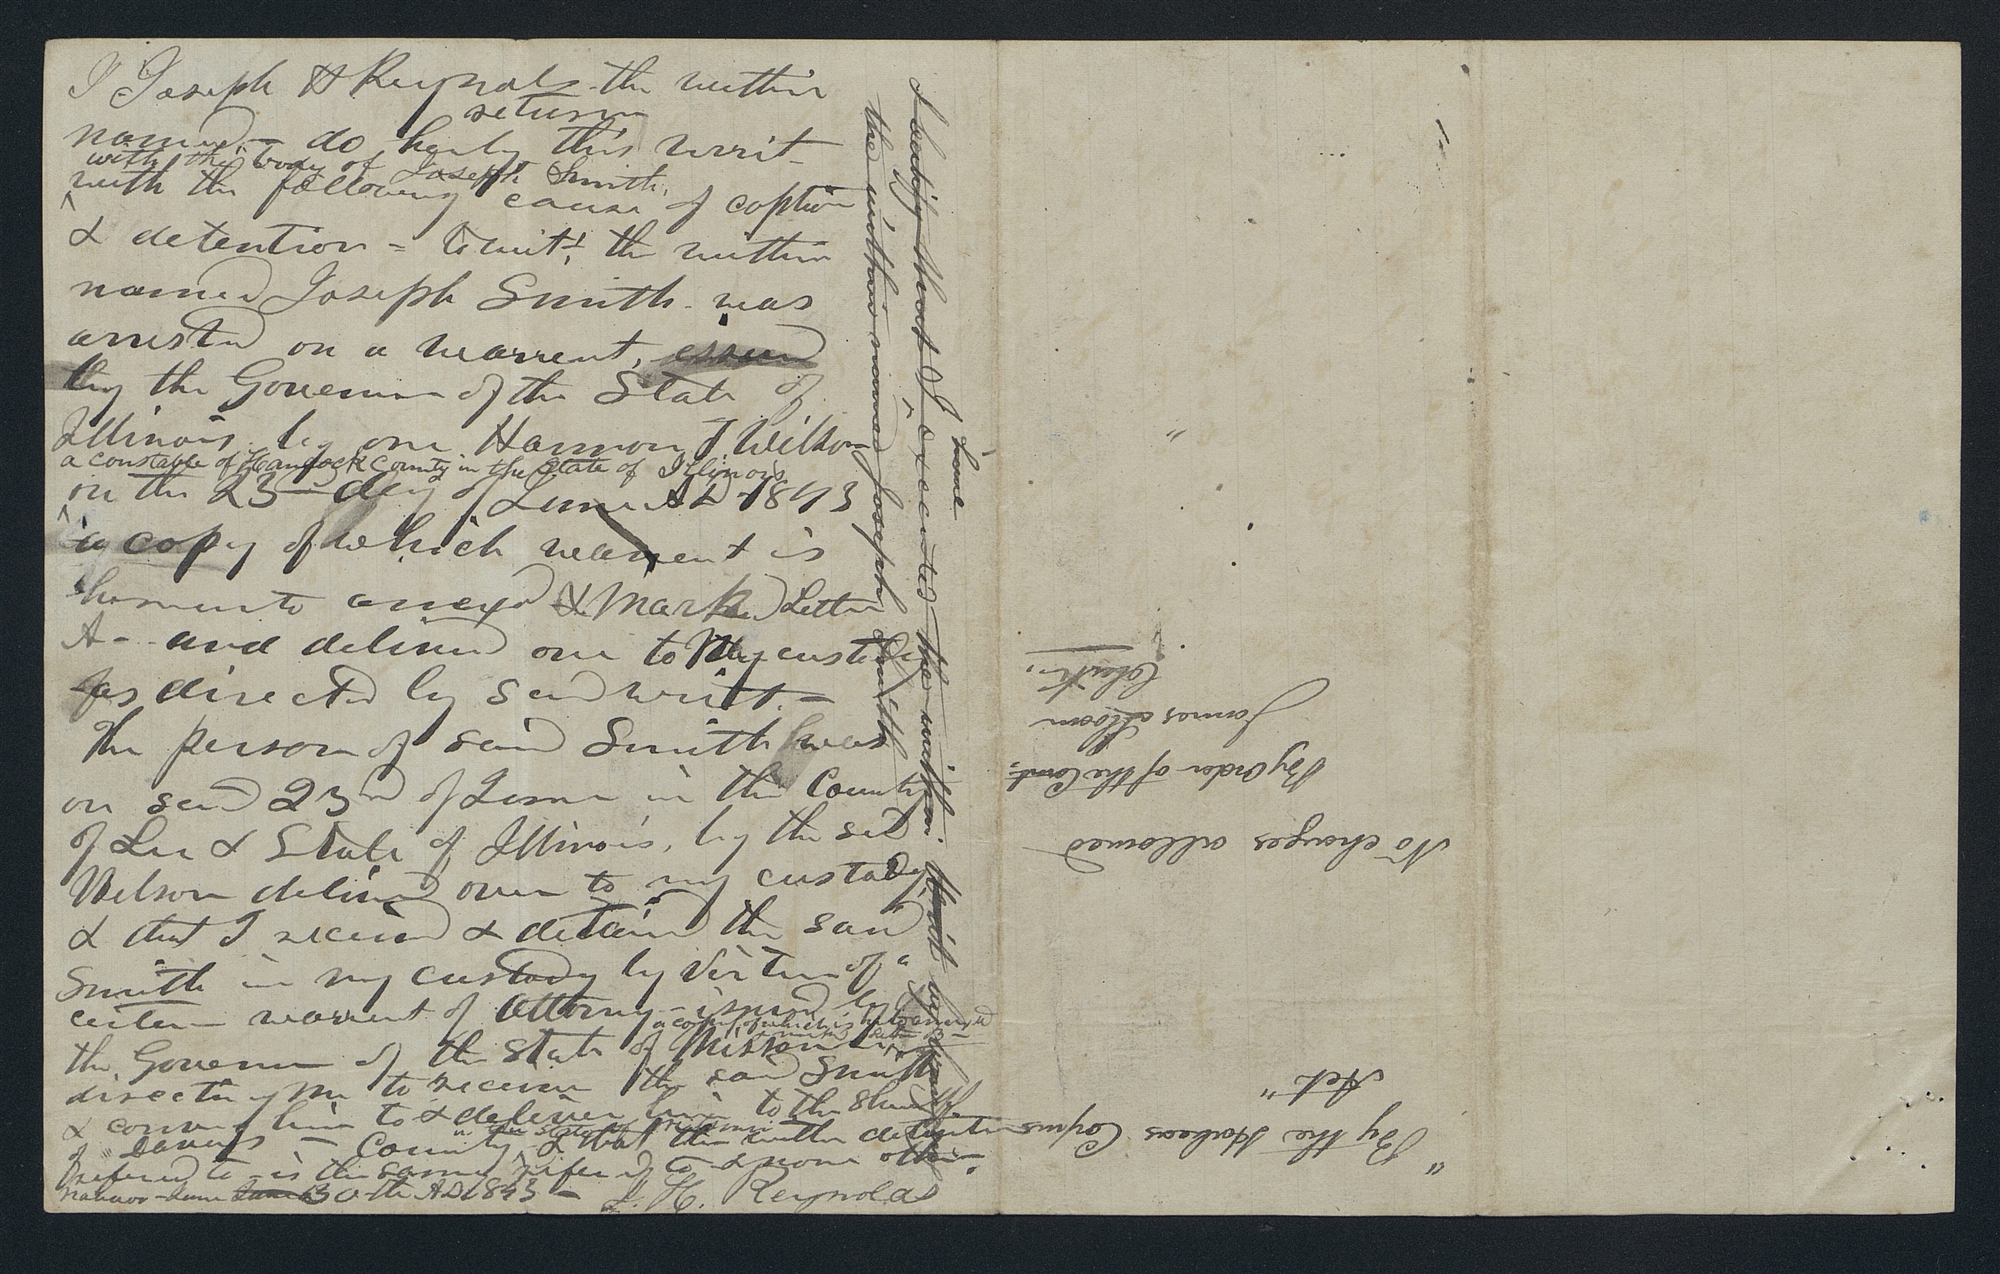 I Joseph H Reynolds the within
return
named – do hereby this writ –
with the body of Joseph Smith,
with the following cause of caption
^
& detention = to wit, the within
named Joseph Smith was
arrested on a warrent, essued
by the Governer of the State of
Illinois by one Harmon T Wilson
a constable of Hancock County in the State of Illinois
on the 23 day of June AD 1843
^
a copy of which warrent is
hereunto anexed & Marked Letter
A – and delivered over to My custody
as directed by said writ. –
The person of said Smith was
on said 23rd of June in the County
of Lee & State of Illinois, by the sd
Wilson delivered over to my custody,
& that I received & detained the said
Smith in my custody by Virtue of a
certen warrent of Attorny – issued by
a copy of which is hereto annexed
marked Letter B –
the Governer of the State of Missouri
directing me to receive the said Smith
& convey him to & deliver him to the Sheriff
in the State of Missouri
of Davess – County & that the within detention
refered to – is the same refered to & none other.
Nauvoo – June June 30th AD 1843 – J. H. Reynolds
I certify that I executed the within Writ by
^ I have
the within named Joseph Smith
"By the Habeas Corpus
Act"
No charges allowed
By Order of the Court,
James Sloan
Clerk,